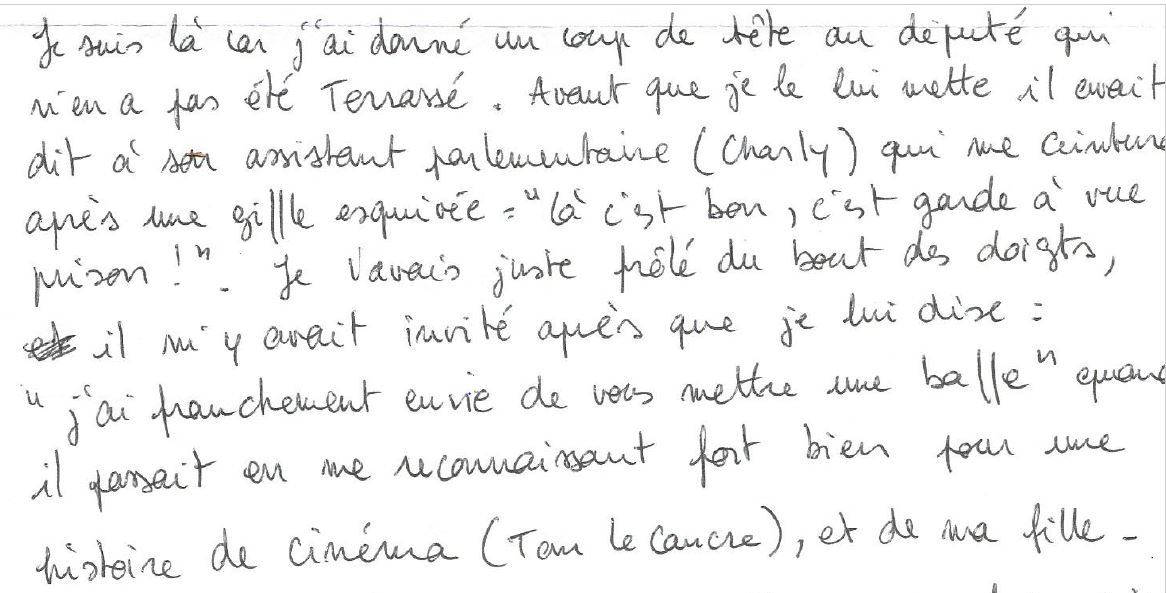 Je suis là car j'ai donné un coup de tête au député qui
n'en a pas été Terrassé. Avant que je le lui mette il avait
dit à son assistant parlementaire (Charly) qui me ceinture
après une gifle esquivée = "là c'est bon, c'est garde à vue
prison !". Je l'avais juste frôlé du bout des doigts,
il m'y avait invité après que je lui dise :
"j'ai franchement envie de vous mettre une balle" quand
il passait en me reconnaissant fort bien pour une
histoire de cinéma (Tom le Cancre), et de ma fille -